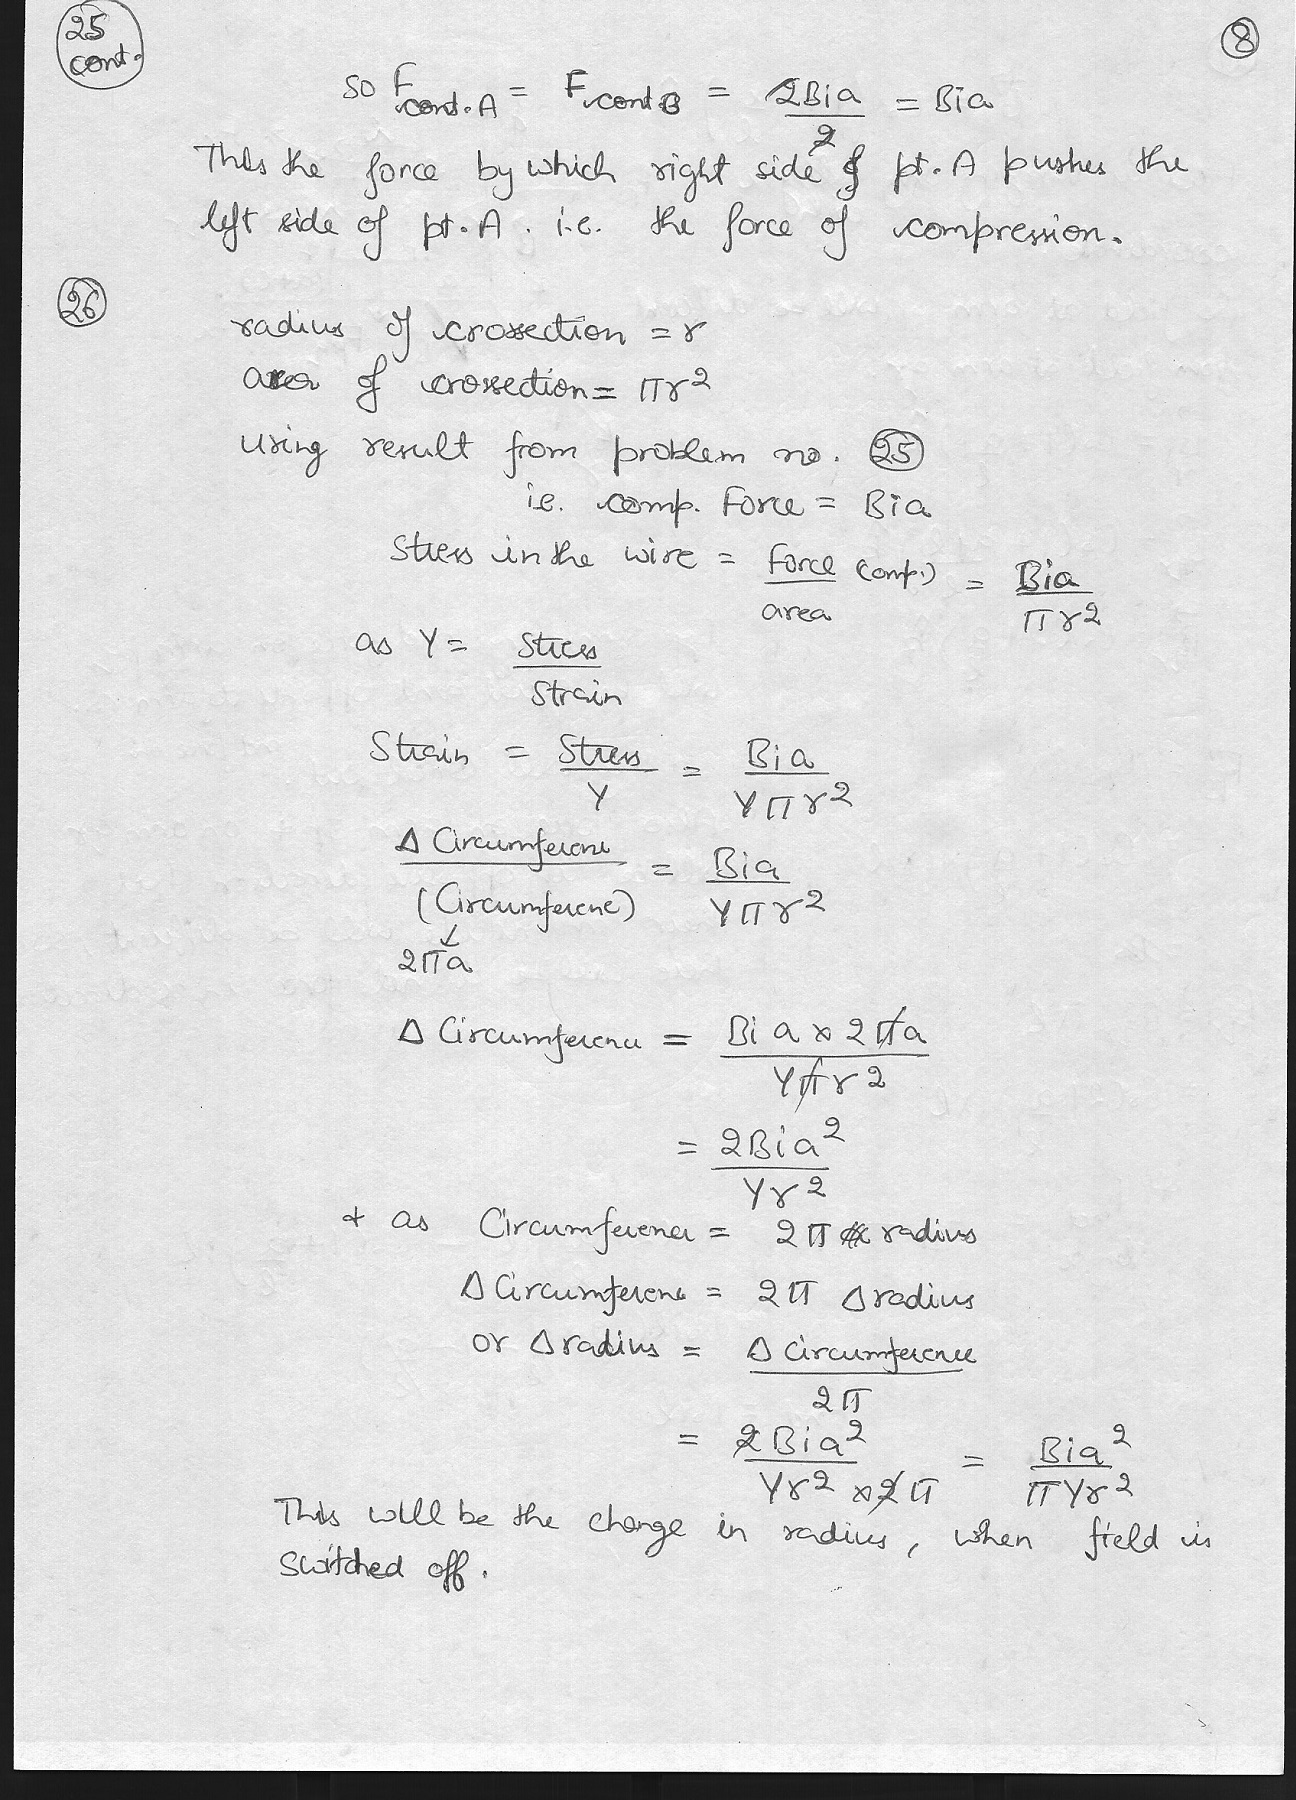 25 cont.
8
so F cont. A = F cont B = 2Bia / 2 = Bia
This the force by which right side of pt. A pushes the
left side of pt. A. i.e. the force of compression.
26
radius of crossection = r
area of crossection = πr²
using result from problem no. 25
i.e. comp. Force = Bia
Stress in the wire = Force (comp.) / area = Bia / πr²
as Y = Stress / Strain
Strain = Stress / Y = Bia / Yπr²
Δ Circumference / (Circumference) = Bia / Yπr²
↓
2πa
Δ Circumference = Bia × 2πa / Yπr²
= 2Bia² / Yr²
+ as Circumference = 2π radius
Δ Circumference = 2π Δradius
or Δradius = Δ circumference / 2π
= 2Bia² / Yr² × 2π = Bia² / πYr²
This will be the change in radius, when field is
switched off.